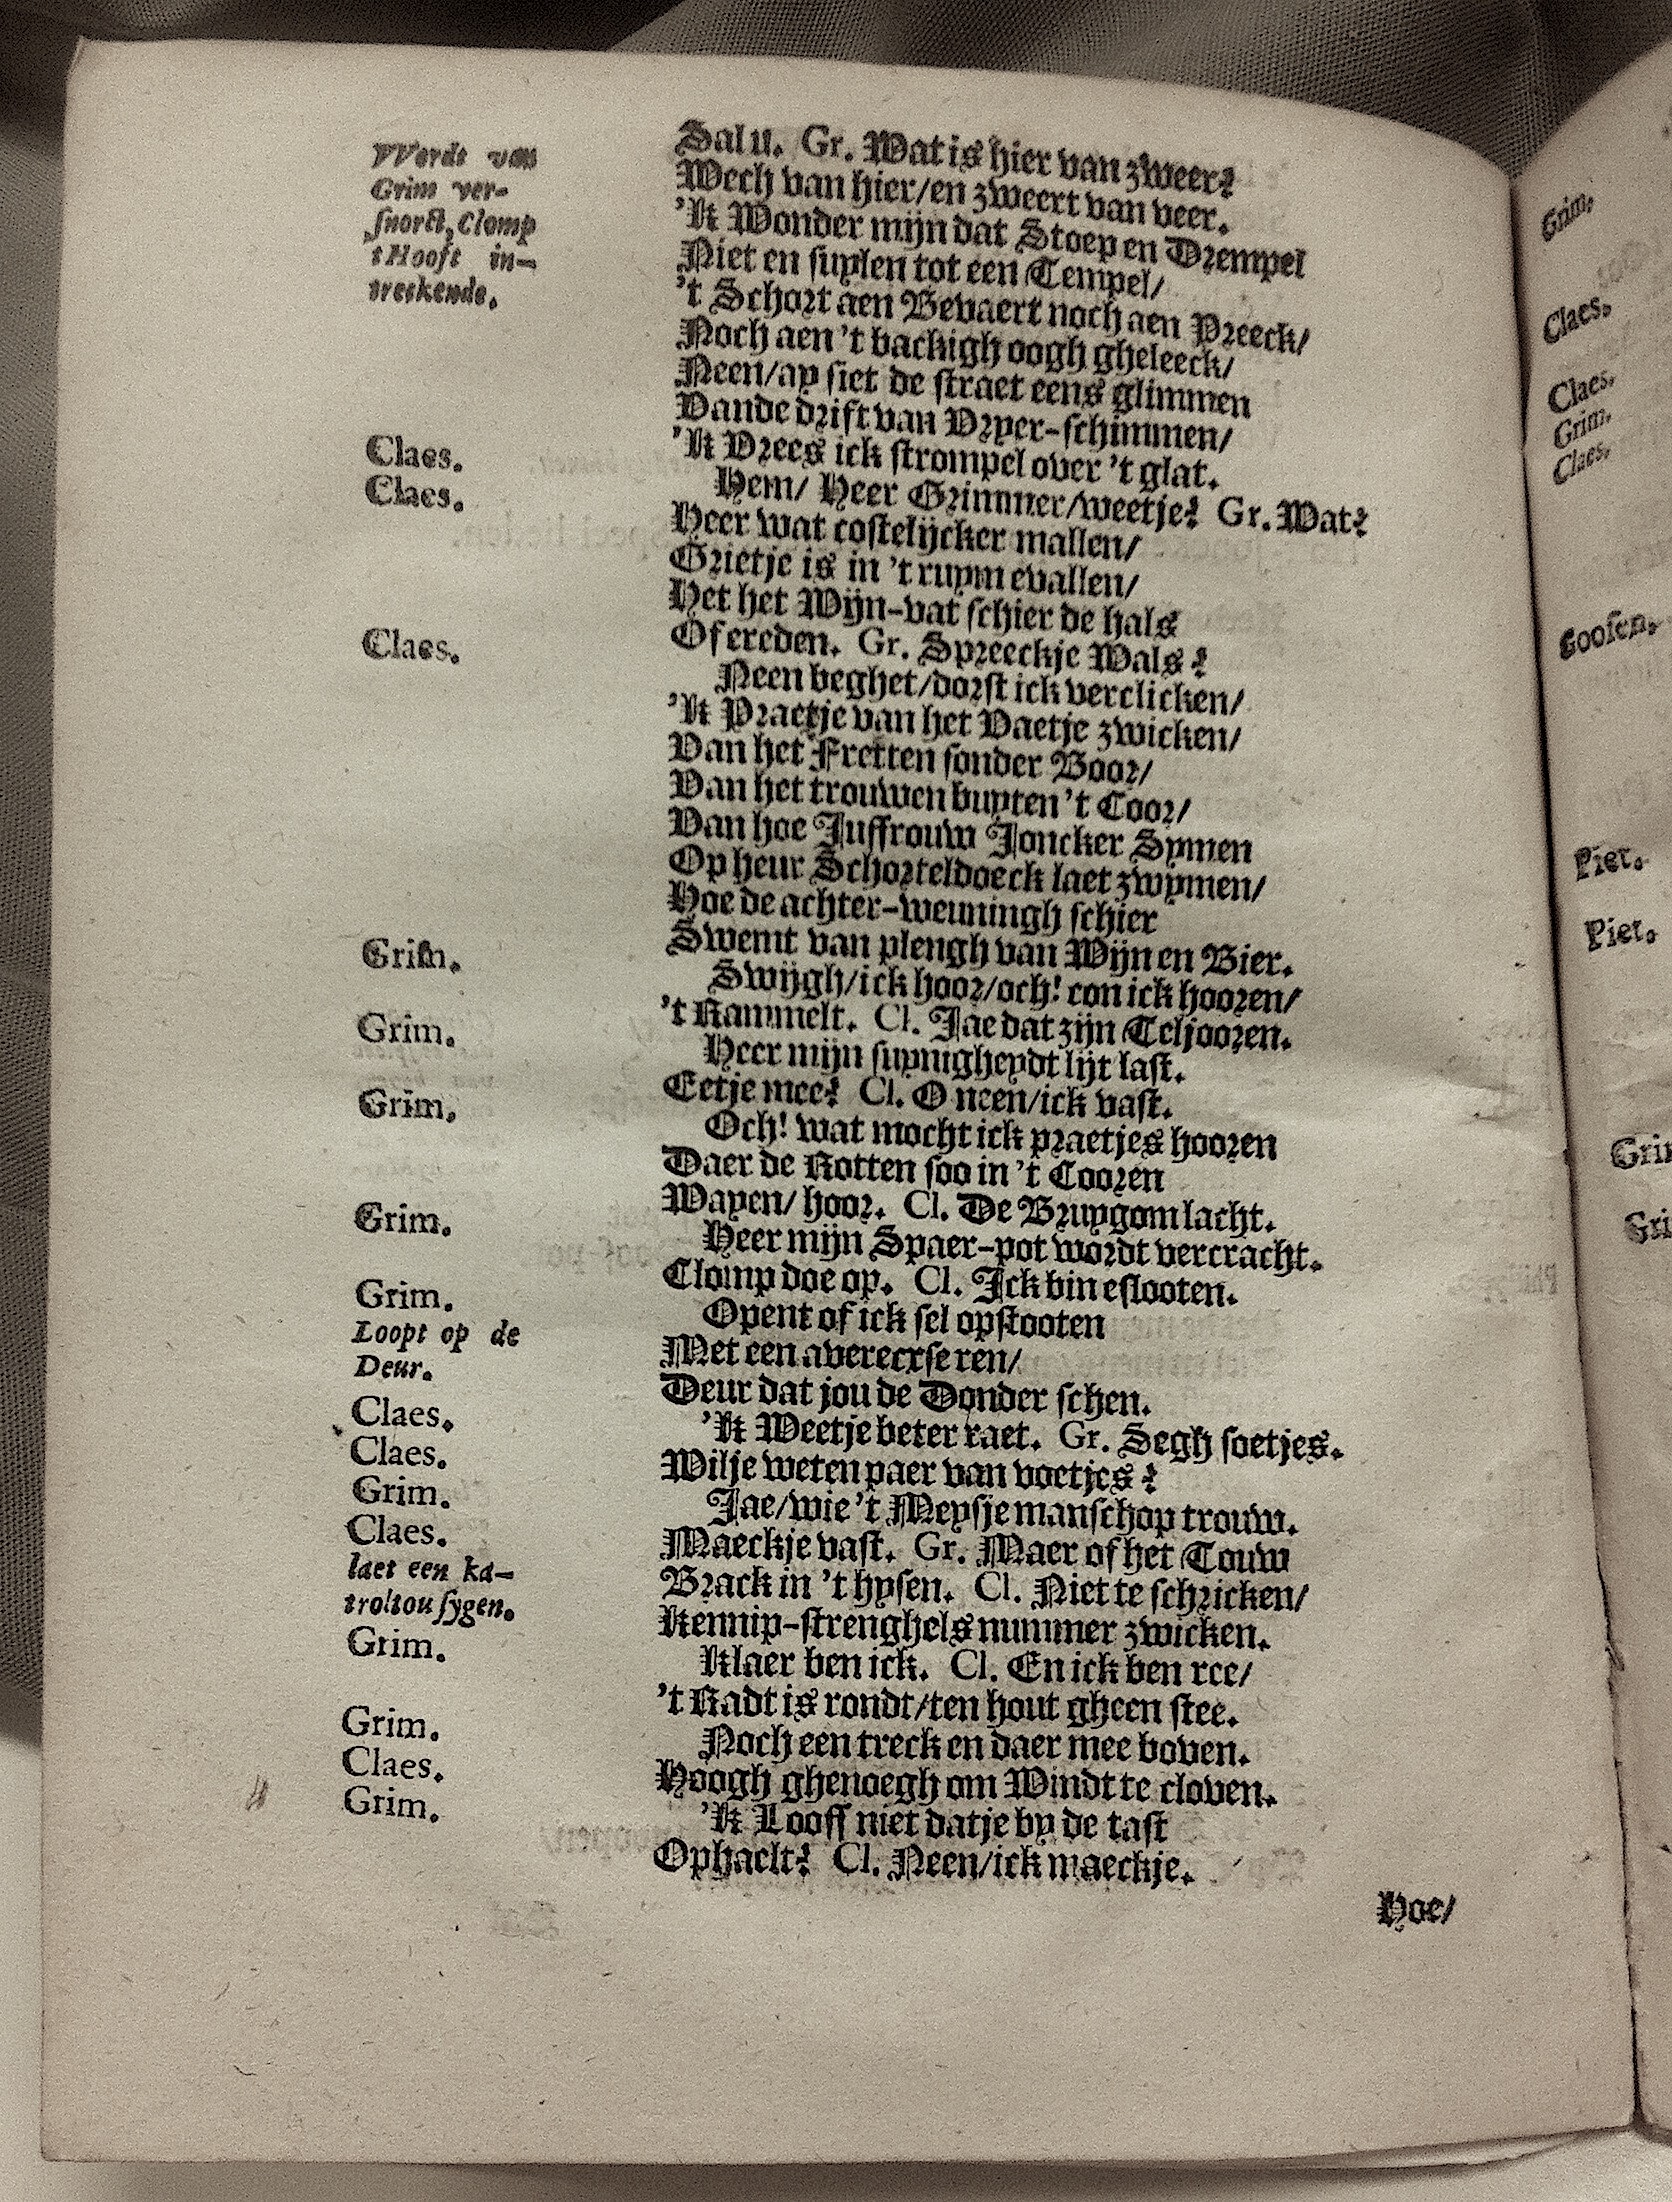 VVerdt van
Grim ver-
snorckt, Clomp
t Hooft in-
treckende.
Sal u. Gr. Wat is hier van zweer?
Wech van hier/en zweert van veer.
'k Wonder mijn dat Stoep en Drempel
Niet en suylen tot een Tempel/
't Schort aen Bevaert noch aen Preeck/
Noch aen 't backigh oogh gheleeck/
Neen/ay siet de straet eens glimmen
Vande drift van Vryer-schimmen/
'k Vrees ick strompel over 't glat.
Claes. Hem/ Heer Grimmer/weetje? Gr. Wat?
Claes. Heer wat costelijcker mallen/
Grietje is in 't ruym evallen/
Het het Wijn-vat schier de hals
Of ereden. Gr. Spreeckje Wals?
Claes. Neen beghet/dorst ick verclicken/
'k Praetje van het Vaetje zwicken/
Van het Fretten sonder Boor/
Van het trouwen buyten 't Coor/
Van hoe Juffrouw Joncker Symen
Op heur Schorteldoeck laet zwymen/
Hoe de achter-weuningh schier
Swemt van plengh van Wijn en Bier.
Grim. Swijgh/ick hoor/och! con ick hooren/
't Rammelt. Cl. Jae dat zijn Teljooren.
Grim. Heer mijn suynigheydt lijt last.
Eetje mee? Cl. O neen/ick vast.
Grim. Och! wat mocht ick praetjes hooren
Daer de Rotten soo in 't Cooren
Wayen/ hoor. Cl. De Bruygom lacht.
Grim. Heer mijn Spaer-pot wordt vercracht.
Clomp doe op. Cl. Ick bin eslooten.
Grim. Opent of ick sel opstooten
Loopt op de
Deur.
Met een averecxse ren/
Deur dat jou de Donder schen.
Claes. 'k Weetje beter raet. Gr. Segh soetjes.
Claes. Wilje weten paer van voetjes?
Grim. Jae/wie 't Meysje manschop trouw.
Claes. Maeckje vast. Gr. Maer of het Touw
laet een ka-
troltou sygen.
Brack in 't hysen. Cl. Niet te schricken/
Kennip-strenghels nummer zwicken.
Grim. Klaer ben ick. Cl. En ick ben ree/
't Radt is rondt/ten hout gheen stee.
Grim. Noch een treck en daer mee boven.
Claes. Hoogh ghenoegh om Windt te cloven.
Grim. 'k Looff niet datje by de tast
Ophaelt? Cl. Neen/ick maeckje.
Hoe/
Grim.
Claes.
Claes.
Grim.
Claes.
Goosen.
Piet.
Piet.